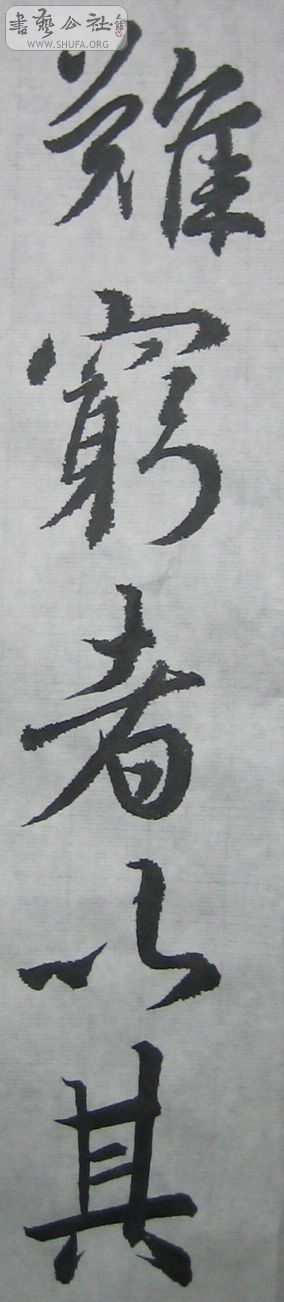 書藝公社
WWW.SHUFA.ORG
難窮者以其